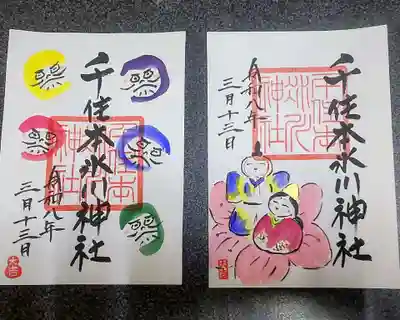 千住本氷川神社
令和八年
三月十三日
大吉
千住本氷川神社
令和八年
三月十三日